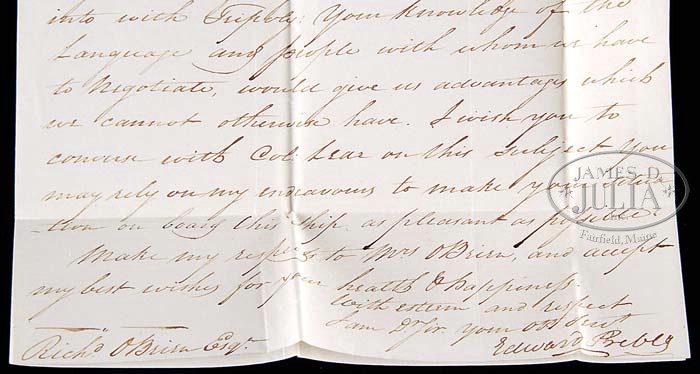 into with Tripoly: Your knowledge of the
Language and people with whom we have
to Negotiate, would give us advantages which
we cannot otherwise have. I wish you to
converse with Col: Lear on this subject You
may rely on my endeavours to make your situa-
-tion on board this ship as pleasant as possible
Make my respects to Mrs OBrien, and accept
my best wishes for your health & happiness.
With esteem and respect
I am Dr Sir your Obt Servt
Edward Preble
Richd OBrien Esqr.
JAMES D.
JULIA
INC.
Fairfield, Maine